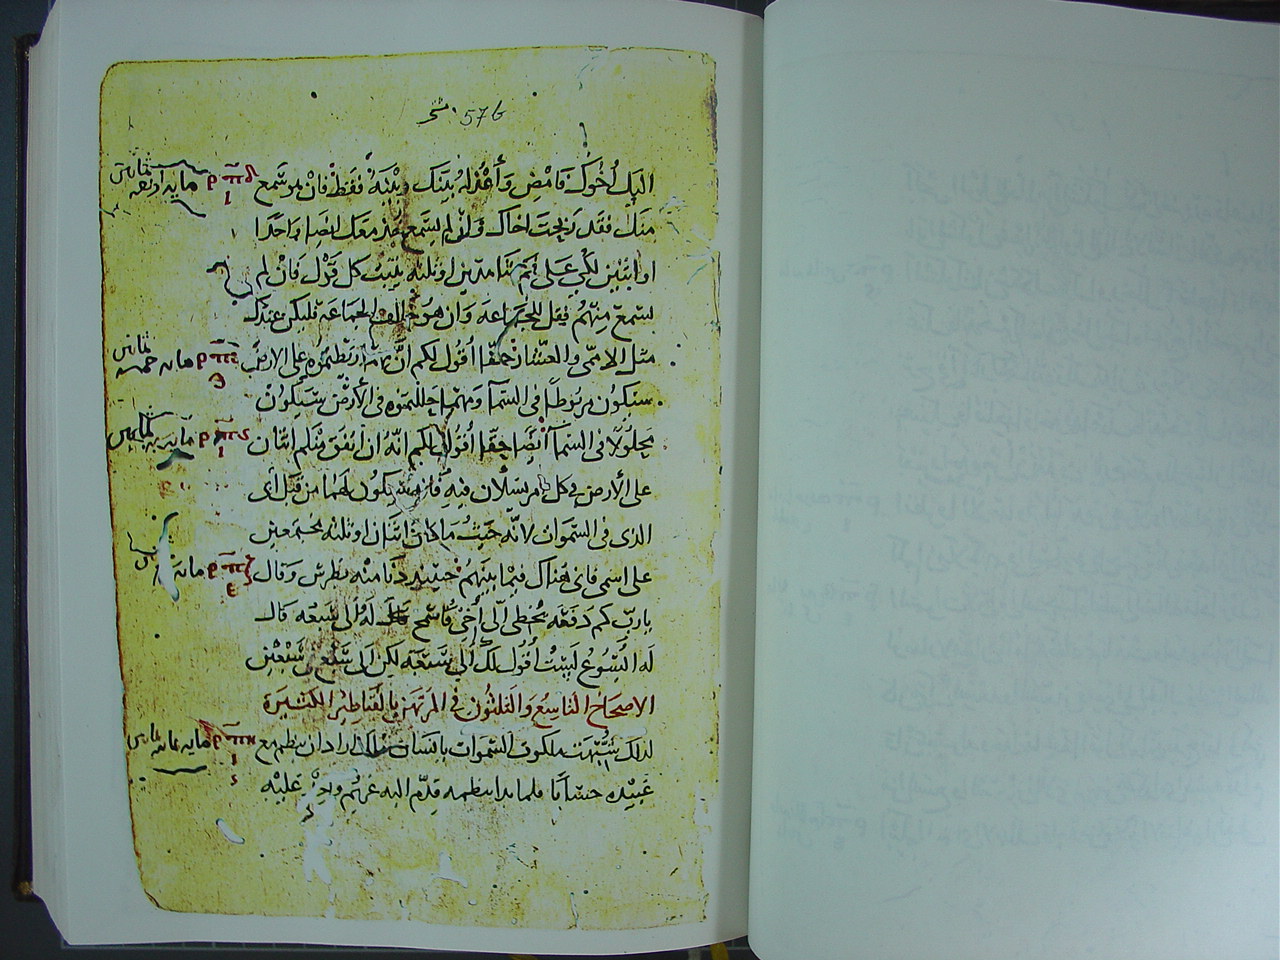 57b
اليك أخوك فامض وأعذله بينك وبينه فقط فان هو سمع
منك فقد ربحت اخاك وان لم يسمع فخذ معك ايضا واحدا
او اثنين لكي على فم شاهدين او ثلثه يثبت كل قول فان لم
يسمع منهم فقل للجماعه وان هو خالف الجماعه فليكن عندك
مثل الاممى والعشار حقا أقول لكم ان مهما ربطتموه على الارض
سيكون مربوطا فى السمآ ومهما حللتموه فى الأرض سيكون
محلولا فى السمآ أيضا حقا أقول لكم انه ان اتفق منكم اثنان
على الأرض في كل امر يسلان فيه فانه سيكون لهما من قبل أبى
الذى فى السموات لانه حيث ما كان اثنان او ثلثه مجتمعين
على اسمى فانى هناك فيما بينهم حينيذ دنا منه بطرس وقال
يا رب كم دفعه يخطى إلى أخى فاسمح له ألى سبعه قال
له اليسوع ليست أقول لك ألى سبعه لكن الى سبعين
الاصحاح التاسع والثلثون في المرتهن بالقناطير الكثيرة
لذلك تشبهت ملكوت السموات بانسان ملك اراد ان ينظم مع
عبيده حسابا فلما بدا ينظمه قدم اليه غريم وجب عليه